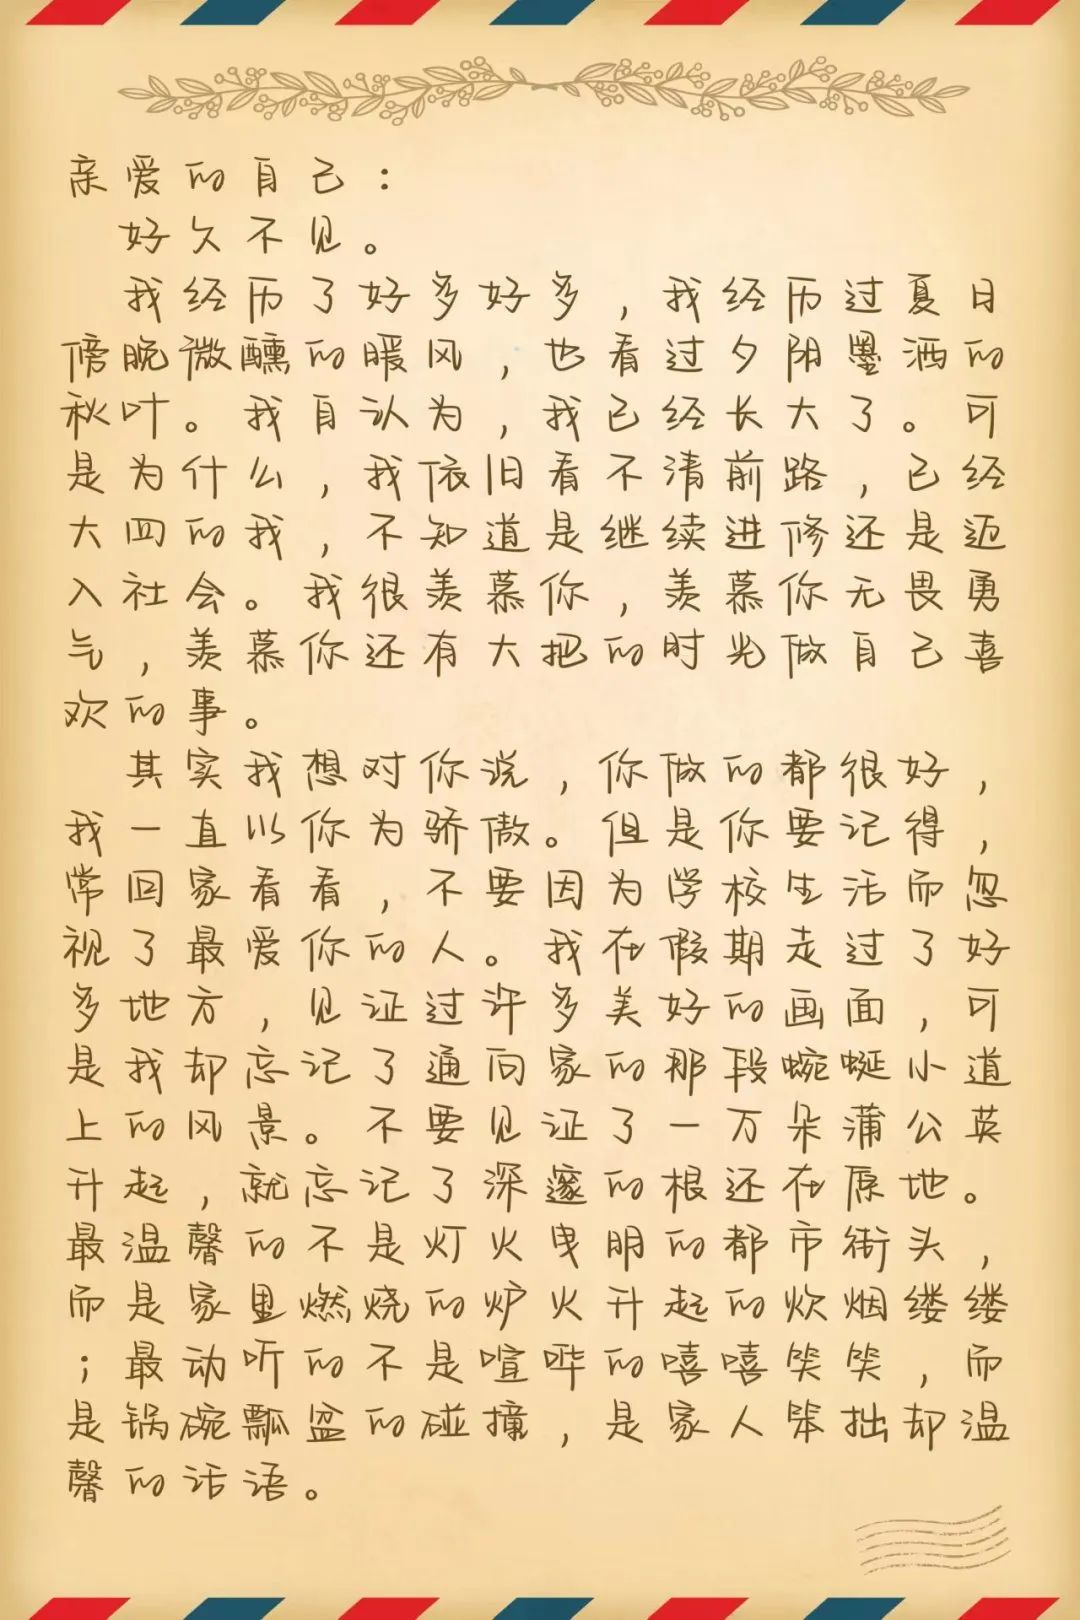 亲爱的自己：
好久不见。
我经历了好多好多，我经历过夏日
傍晚微醺的暖风，也看过夕阳墨洒的
秋叶。我自认为，我已经长大了。可
是为什么，我依旧看不清前路，已经
大四的我，不知道是继续进修还是迈
入社会。我很羡慕你，羡慕你无畏勇
气，羡慕你还有大把的时光做自己喜
欢的事。
其实我想对你说，你做的都很好，
我一直以你为骄傲。但是你要记得，
常回家看看，不要因为学校生活而忽
视了最爱你的人。我在假期走过了好
多地方，见证过许多美好的画面，可
是我却忘记了通向家的那段蜿蜒小道
上的风景。不要见证了一万朵蒲公英
升起，就忘记了深邃的根还在原地。
最温馨的不是灯火曳明的都市街头，
而是家里燃烧的炉火升起的炊烟缕缕
；最动听的不是喧哗的嘻嘻笑笑，而
是锅碗瓢盆的碰撞，是家人笨拙却温
馨的话语。